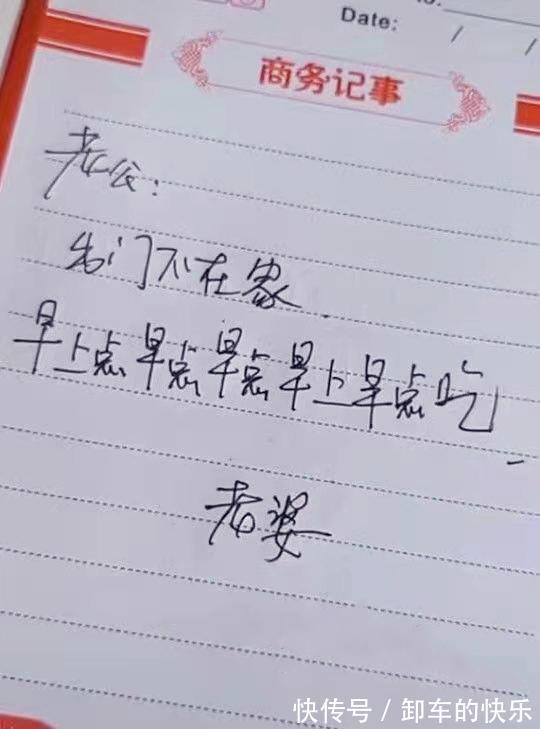 Date: / /
商务记事
老公：
出门不在家.
早上点早点早点早上早点吃
老婆
快传号 / 卸车的快乐